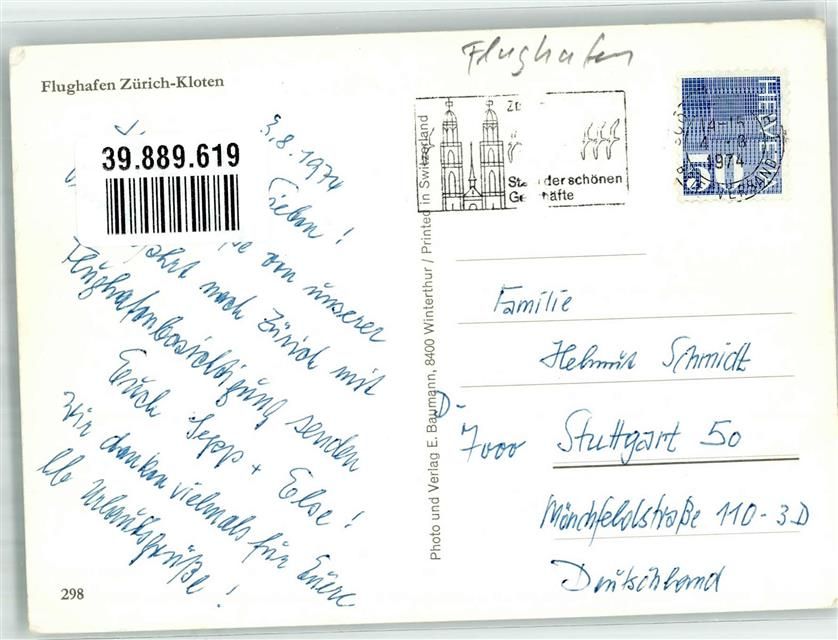 Flughafen Zürich-Kloten
Flughafen
39.889.619
3.8.1974
Lieben!
von unserer
fahrt nach Zürich mit
Flughafenbesichtigung senden
Euch Sepp + Else!
Wir danken vielmals für Eure
lb Urlaubsgrüße!
298
Photo und Verlag E. Baumann, 8400 Winterthur / Printed in Switzerland
der schönen
HELVE
50
14-15
1974
VERSAND
Familie
Helmut Schmidt
D-
7000 Stuttgart 50
Mönchfeldstraße 110-3D
Deutschland